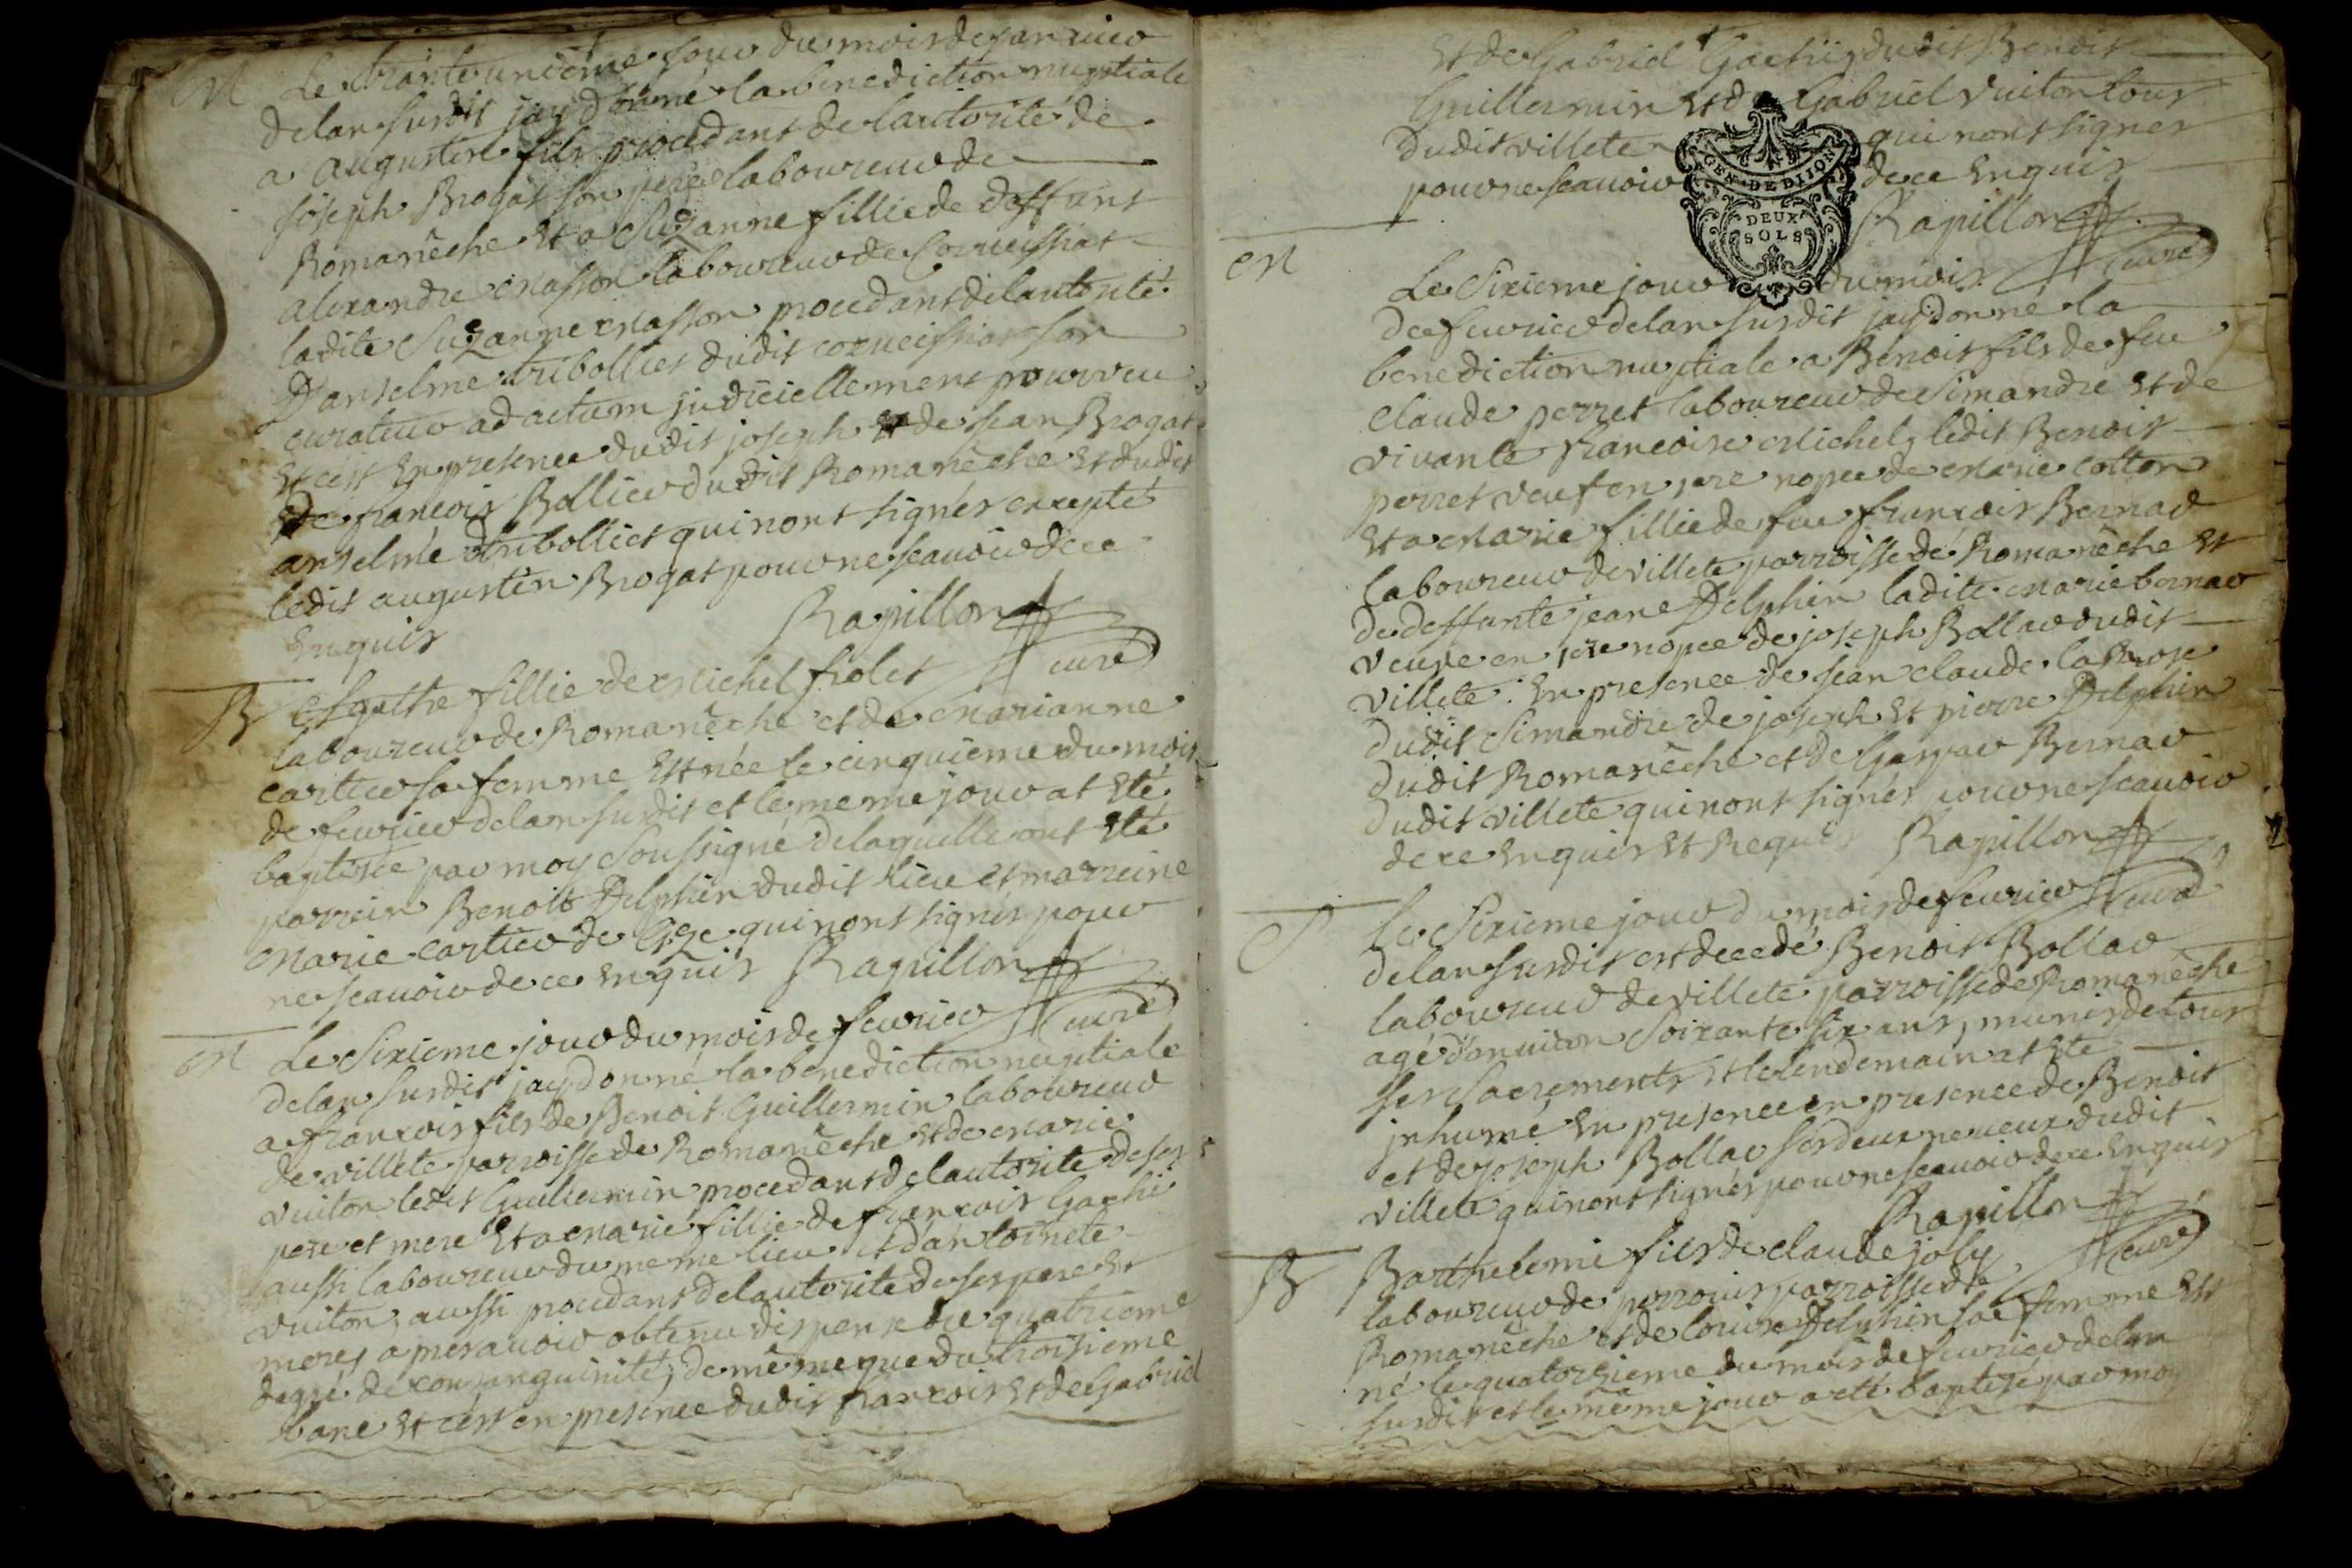 M Le trante unième jour du mois de janvier
delan susdit jay donné la benediction nuptiale
a augustin fils procedant de lautorité de
joseph Brogat son pere laboureur de
Romanêche et a Suzanne fillie de deffunt
alexandre masson laboureur de Corveissiat
ladite Suzanne masson procedant delautorité
Danselme tribolliet dudit corveissiat son
curateur ad actum judiciellement pourveu
et cést en presence dudit joseph et de jean Brogat
de francois Bollier dudit Romanêche et dudit
anselme tribolliet qui nont signés excepté
ledit augustin Brogat pour ne scavoir de ce
enquis Rapillon
curé
B Agathe fillie de michel fiolet
laboureur de Romanêche et de marianne
cartier sa femme est née le cinquieme du mois
de fevrier delan susdit et le meme jour at eté
baptisée par moy soussigné delaquelle ont eté
parrein Benoit Delphin dudit lieu et marreine
marie cartier de Cize qui nont signés pour
ne scavoir de ce enquis Rapillon
curé
M Le Sixieme jour du mois de fevrier
delan susdit jay donné la benediction nuptiale
a francois fils de Benoit Guillermin laboureur
de villete parroisse de Romanêche et de marie
vuiton ledit Guillermin procedant delautorité de ses
pere et mere et a marie fillie de francois Gachi
aussi laboureur du meme lieu et dantoinete
vuiton aussi procedant delautorité de ses pere et
mere apres avoir obtenu dispense du quatrieme
degré de consanguinité de même que du troisieme
banc et cést en presence dudit francois et de Gabriel
et de Gabriel Gachi dudit Benoit
Guillermin et de Gabriel vuiton tous
dudit villete qui nont signés
pour ne scavoir de ce enquis
GEN · DE DIJON
DEUX
SOLS
Rapillon
curé
M Le Sixieme jour du mois
de fevrier delan susdit jay donné la
benediction nuptiale a Benoit fils de feu
Claude perret laboureur de Simandre et de
vivante francoise michel ledit Benoit
perret veuf en 1ere nopce de marie cotton
et a marie fillie de feu francois Bernad
laboureur de villete parroisse de Romanêche et
de deffunte jeane Delphin ladite marie bernar
veuve en 1ere nopce de joseph Bollar dudit
villete : en presence de jean claude
dudit Simandre de joseph et pierre Delphin
dudit Romanêche et de Gaspar Bernar
dudit villete qui nont signés pour ne scavoir
de ce enquis et Requis Rapillon
curé
S Le Sixieme jour du mois de fevrier
delan susdit est decedé Benoit Bollar
laboureur de villete parroisse de Romanêche
agé danviron Soixante six ans, munis de tous
ses sacrements et le lendemain at eté
inhumé en presence en presence de Benoit
et de joseph Bollar ses deux neveux dudit
villete qui nont signés pour ne scavoir de ce enquis
Rapillon
curé
B Barthelemi fils de claude joly
laboureur de perrouis parroisse de
Romanêche et de louise Delphin sa femme est
né le quatorzieme du mois de fevrier delan
susdit et le même jour a eté baptisé par moy